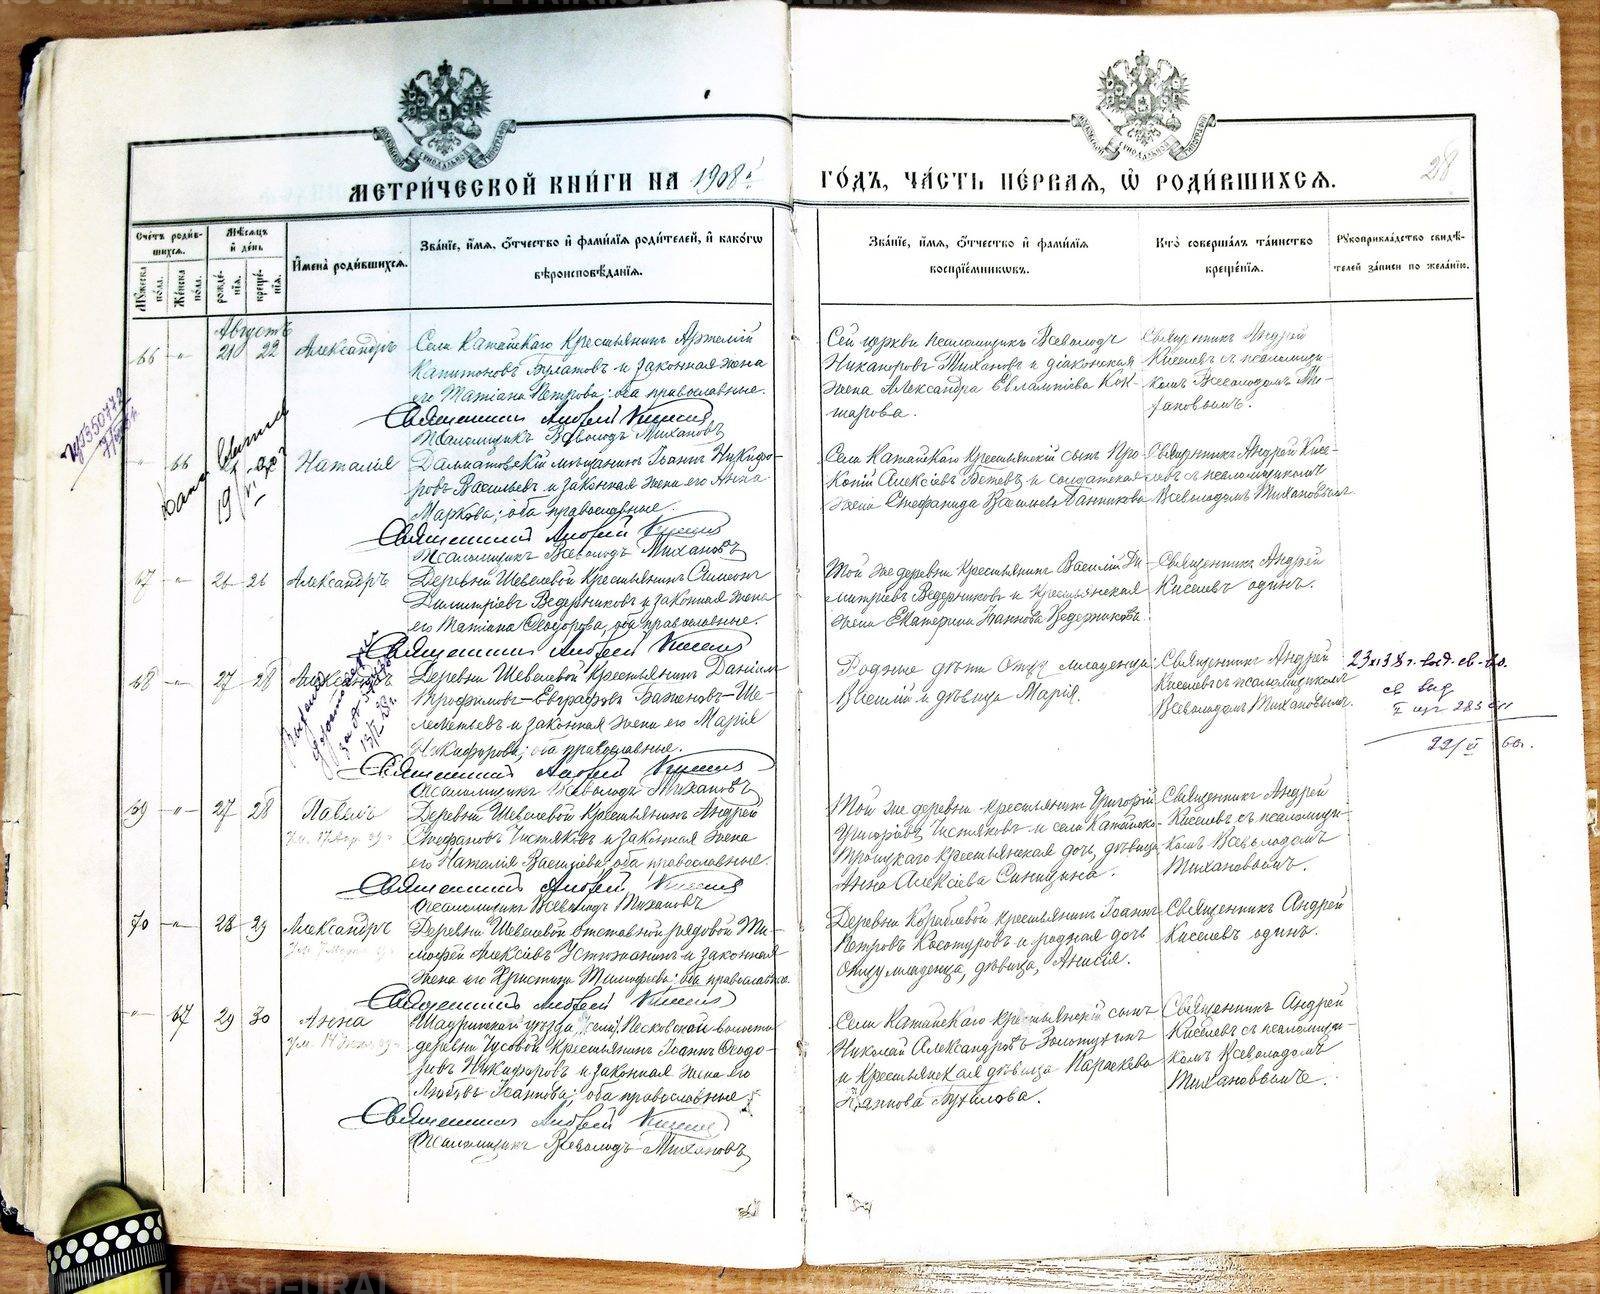 МЕТРИ́ЧЕСКОЙ КНИ́ГИ НА 1908й
ГО́ДЪ, ЧА́СТЬ ПЕ́РВАЯ, Ѡ҆ РОДИ́ВШИХСѦ.
28
Сче́тъ роди́вшихсѧ.
Му́жеска по́ла.
Же́нска по́ла.
Мѣ́сѧцъ и҆ де́нь
рожде́нїѧ.
креще́нїѧ.
И҆мена̀ роди́вшихсѧ.
Зва́нїе, и҆́мѧ, ѻ҆́тчество и҆ фами́лїѧ роди́телей, и҆ како́гѡ
вѣроисповѣ́данїѧ.
Зва́нїе, и҆́мѧ, ѻ҆́тчество и҆ фами́лїѧ
воспрїе́мникѡвъ.
Кто̀ соверша́лъ та́инство
креще́нїѧ.
Рꙋкоприкла́дство свидѣ́-
телей за́писи по жела́нїю.
Августъ
66 " 21 22 Александръ
Села Катайскаго крестьянинъ Артемій
Капитоновъ Булатовъ и законная жена
его Татіана Петрова; оба православные.
Священникъ Андрей Киселевъ
Псаломщикъ Всеволодъ Тихановъ
Сей церкви псаломщикъ Всеволодъ
Никаноровъ Тихановъ и діаконская
жена Александра Евлампіева Кок-
шарова.
Священникъ Андрей
Киселевъ съ псаломщи-
комъ Всеволодомъ Ти-
хановымъ.
" 66 Наталія
Далматовскій мѣщанинъ Іоаннъ Никифо-
ровъ Васильевъ и законная жена его Анна
Маркова; оба православные.
Священникъ Андрей Киселевъ
Псаломщикъ Всеволодъ Тихановъ
Села Катайскаго крестьянскій сынъ Про-
копій Алексѣевъ и солдатская
жена Стефанида Васильева
Священникъ Андрей Кисе-
левъ съ псаломщикомъ
Всеволодомъ Тихановымъ
67 " 26 26 Александръ
Деревни Шевелевой крестьянинъ Симеонъ
Димитріевъ Ведерниковъ и законная жена
его Татіана Ѳеодорова, оба православные.
Священникъ Андрей Киселевъ
Той же деревни крестьянинъ Василій Ди-
митріевъ Ведерниковъ и крестьянская
жена Екатерина Іоаннова Ведерникова.
Священникъ Андрей
Киселевъ одинъ.
68 " 27 28 Александръ
Деревни Шевелевой крестьянинъ Даніилъ
Трофимовъ-Евграфовъ Баженовъ-Ше-
леметьевъ и законная жена его Марія
Никифорова; оба православные.
Священникъ Андрей Киселевъ
Псаломщикъ Всеволодъ Тихановъ
Родные дѣти отцу младенца:
Василій и дѣвица Марія.
Священникъ Андрей
Киселевъ съ псаломщикомъ
Всеволодомъ Тихановымъ.
69 " 27 28 Павелъ
Деревни Шевелевой крестьянинъ Андрей
Стефановъ Чистяковъ и законная жена
его Наталія Васильева, оба православные.
Священникъ Андрей Киселевъ
Псаломщикъ Всеволодъ Тихановъ
Той же деревни крестьянинъ Григорій
Григоріевъ Чистяковъ и села Катайско-
Троицкаго крестьянская дочь, дѣвица
Анна Алексѣева Синицина.
Священникъ Андрей
Киселевъ съ псаломщи-
комъ Всеволодомъ
Тихановымъ.
70 " 28 29 Александръ
Деревни Шевелевой отставной рядовой Ти-
мофей Алексѣевъ Устюжанинъ и законная
жена его Христина Тимофеева; оба православные.
Священникъ Андрей Киселевъ
Деревни Кораблевой крестьянинъ Іоаннъ
Петровъ Косотуровъ и родная дочь
отцу младенца, дѣвица, Анисія.
Священникъ Андрей
Киселевъ одинъ.
" 67 29 30 Анна
Шадринскаго уѣзда, Песковской волости
деревни Чусовой крестьянинъ Іоаннъ Ѳеодо-
ровъ Никифоровъ и законная жена его
Любовь Іоаннова; оба православные.
Священникъ Андрей Киселевъ
Псаломщикъ Всеволодъ Тихановъ
Села Катайскаго крестьянскій сынъ
Николай Александровъ Золотухинъ
и крестьянская дѣвица Параскева
Іоаннова
Священникъ Андрей
Киселевъ съ псаломщи-
комъ Всеволодомъ
Тихановымъ.